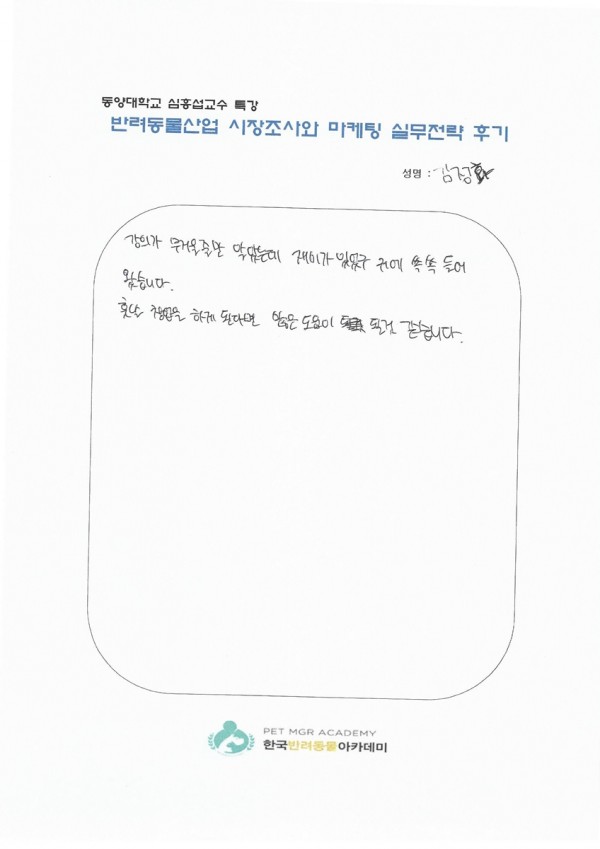 동양대학교 심홍섭교수 특강
반려동물산업 시장조사와 마케팅 실무전략 후기
성명 : 김정
강의가 무거울줄만 알았는데 재미가 있었구 귀에 쏙쏙 들어
왔습니다.
훗날 창업을 하게 된다면 많은 도움이 될것 같습니다.
PET MGR ACADEMY
한국반려동물아카데미